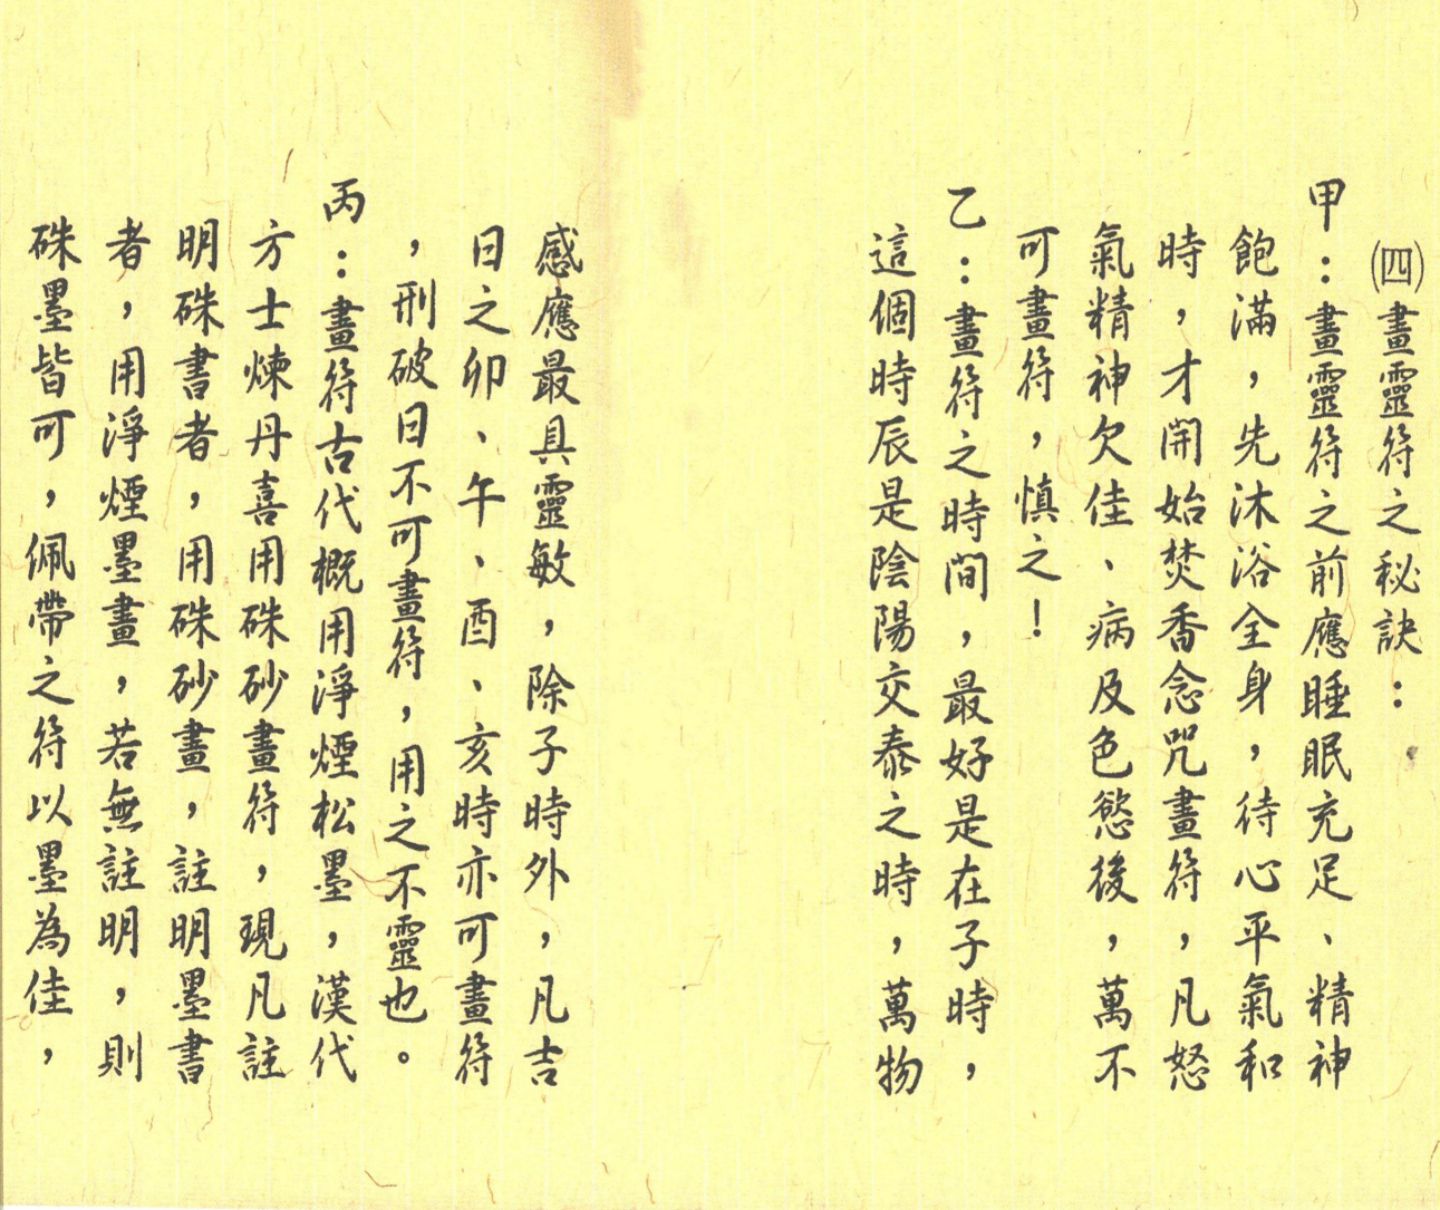 ㈣畫靈符之秘訣：
甲：畫靈符之前應睡眠充足、精神
飽滿，先沐浴全身，待心平氣和
時，才開始焚香念咒畫符，凡怒
氣精神欠佳、病及色慾後，萬不
可畫符，慎之！
乙：畫符之時間，最好是在子時，
這個時辰是陰陽交泰之時，萬物
感應最具靈敏，除子時外，凡吉
日之卯、午、酉、亥時亦可畫符
，刑破日不可畫符，用之不靈也。
丙：畫符古代概用淨煙松墨，漢代
方士煉丹喜用硃砂畫符，現凡註
明硃書者，用硃砂畫，註明墨書
者，用淨煙墨畫，若無註明，則
硃墨皆可，佩帶之符以墨為佳，